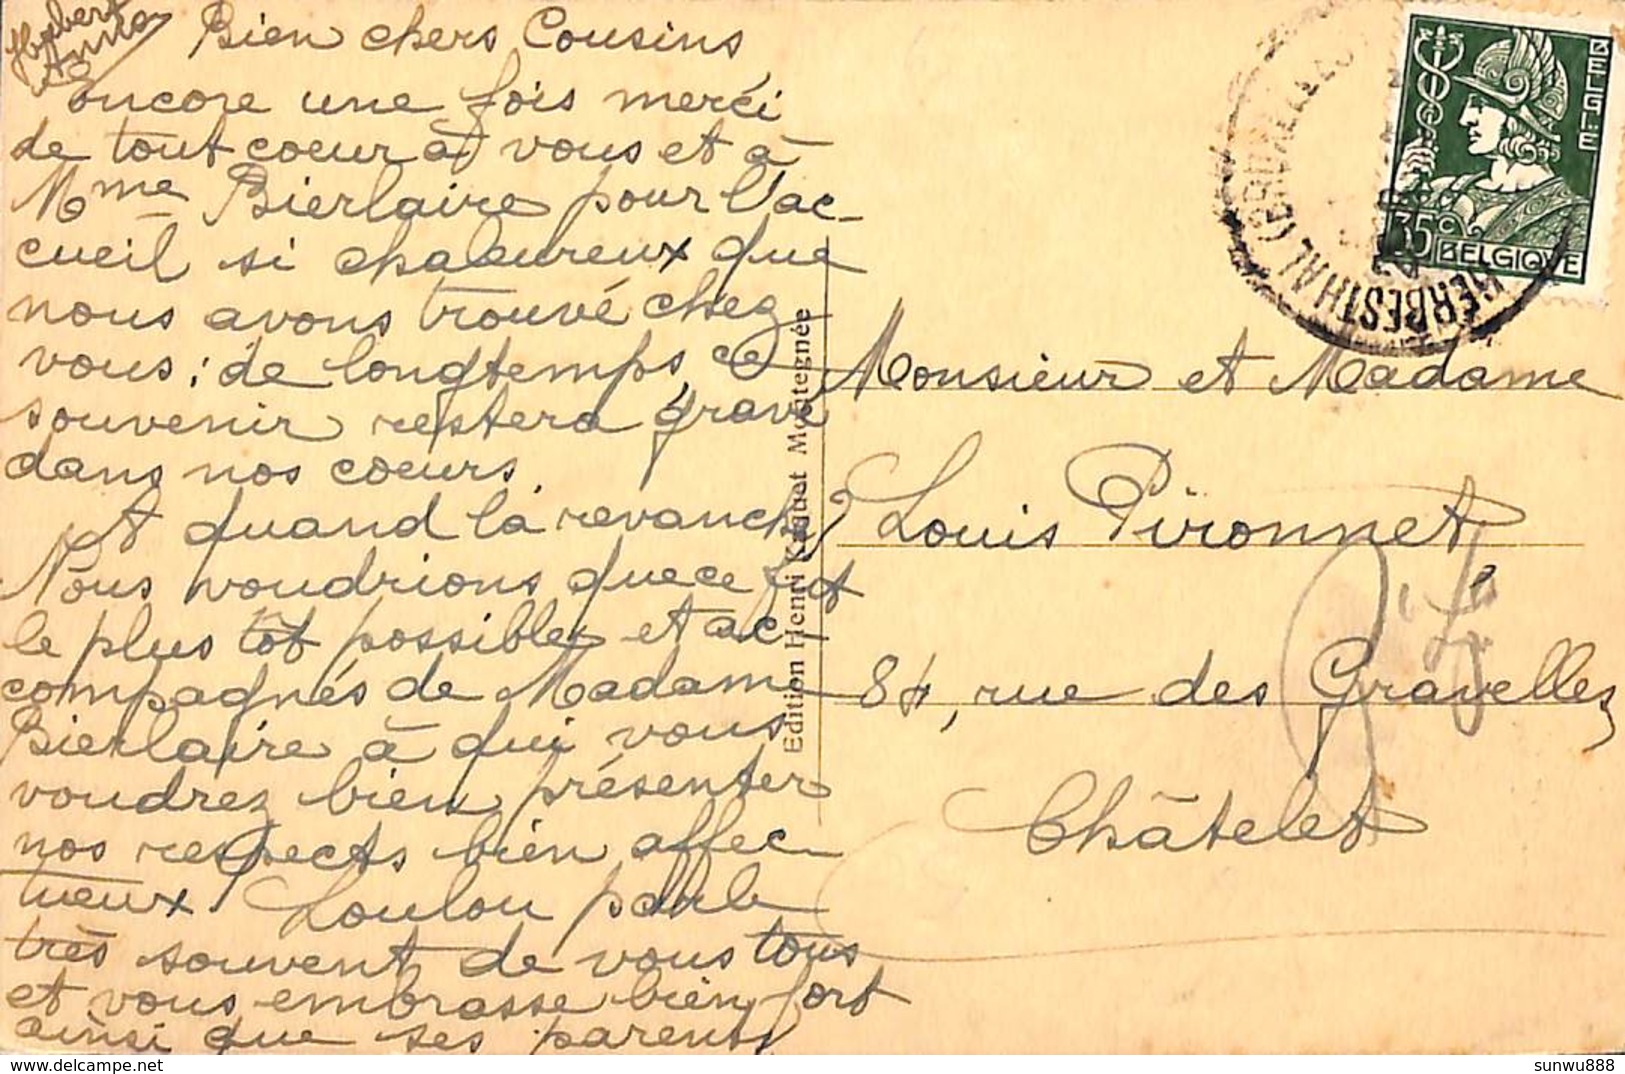 Hubert
Anna
Bien chers Cousins
encore une fois merci
de tout coeur à vous et à
Mme Bierlaire pour l'ac-
cueil si chaleureux que
nous avons trouvé chez
vous; de longtemps, ce
souvenir restera gravé
dans nos coeurs.
A quand la revanche?
Nous voudrions que ce fut
le plus tôt possible et ac-
compagnés de Madame
Bierlaire à qui vous
voudrez bien présenter
nos respects bien affec-
tueux. Loulou parle
très souvent de vous tous
et vous embrasse bien fort
ainsi que ses parents
Edition Henri Kaquet Montegnée
BELGIË
35c
BELGIQUE
HERBESTHAL
Monsieur et Madame
Louis Pironnet
84, rue des Gravelles
Châtelet
delcampe.net
sunwu888